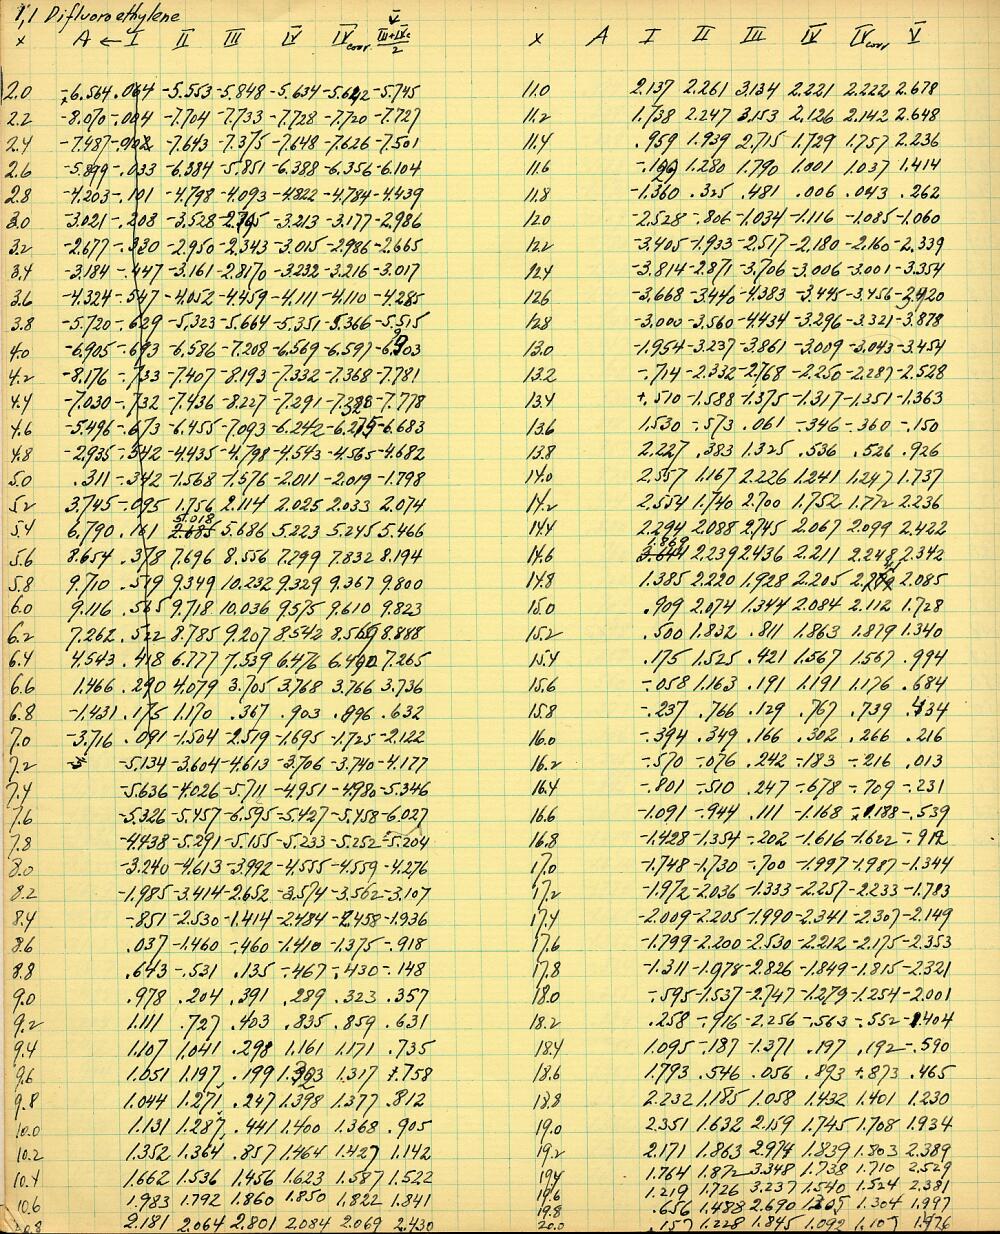 1,1 Difluoroethylene
x A ← I II III IV IV corr V III+IVc/2 x A I II III IV IV corr V
2.0 -6.564 .064 -5.553 -5.848 -5.634 -5.642 -5.745 11.0 2.137 2.261 3.134 2.221 2.222 2.678
2.2 -8.070 -.004 -7.704 -7.733 -7.728 -7.720 -7.727 11.2 1.738 2.247 3.153 2.126 2.142 2.648
2.4 -7.487 -7.643 -7.375 -7.648 -7.626 -7.501 11.4 .959 1.939 2.715 1.729 1.757 2.236
2.6 -5.899 -.033 -6.384 -5.851 -6.388 -6.356 -6.104 11.6 1.280 1.790 1.001 1.037 1.414
2.8 -4.203 -.101 -4.798 -4.093 -4.822 -4.784 -4.439 11.8 -1.360 .325 .481 .006 .043 .262
3.0 -3.021 -.208 -3.528 -3.213 -3.177 -2.986 12.0 -2.528 -.806 -1.034 -1.116 -1.085 -1.060
3.2 -2.677 -.330 -2.950 -2.343 -3.015 -2.986 -2.665 12.2 -3.405 -1.933 -2.517 -2.180 -2.160 -2.339
3.4 -3.184 -.447 -3.161 -2.817 -3.232 -3.216 -3.017 12.4 -3.814 -2.871 -3.706 -3.006 -3.001 -3.354
3.6 -4.324 -.547 -4.052 -4.459 -4.111 -4.110 -4.285 12.6 -3.668 -3.440 -4.383 -3.445 -3.456 -3.920
3.8 -5.720 -.629 -5.323 -5.664 -5.351 -5.366 -5.515 12.8 -3.000 -3.560 -4.434 -3.296 -3.321 -3.878
4.0 -6.905 -.693 -6.586 -7.208 -6.569 -6.597 -6.903 13.0 -1.954 -3.237 -3.861 -3.009 -3.043 -3.454
4.2 -8.176 -.733 -7.407 -8.193 -7.332 -7.368 -7.781 13.2 -.714 -2.332 -2.768 -2.250 -2.287 -2.528
4.4 -7.030 -.732 -7.436 -8.227 -7.291 -7.328 -7.778 13.4 +.510 -1.588 -1.375 -1.317 -1.351 -1.363
4.6 -5.496 -.673 -6.455 -7.093 -6.242 -6.275 -6.683 13.6 1.530 -.573 .061 -.346 -.360 -.150
4.8 -2.935 -.542 -4.435 -4.798 -4.543 -4.565 -4.682 13.8 2.227 .383 1.325 .536 .526 .926
5.0 .311 -.342 -1.568 -1.576 -2.011 -2.019 -1.798 14.0 2.557 1.167 2.226 1.241 1.247 1.737
5.2 3.745 -.095 1.756 2.114 2.025 2.033 2.074 14.2 2.554 1.740 2.700 1.752 1.772 2.236
5.4 6.790 .161 5.018 5.686 5.223 5.245 5.466 14.4 2.294 2.088 2.745 2.067 2.099 2.422
5.6 8.654 .378 7.696 8.556 7.799 7.832 8.194 14.6 1.869 2.239 2.436 2.211 2.248 2.342
5.8 9.710 .519 9.349 10.232 9.329 9.367 9.800 14.8 1.385 2.220 1.928 2.205 2.085
6.0 9.116 .565 9.718 10.036 9.575 9.610 9.823 15.0 .909 2.074 1.344 2.084 2.112 1.728
6.2 7.262 .522 8.785 9.207 8.542 8.569 8.888 15.2 .500 1.832 .811 1.863 1.879 1.340
6.4 4.543 .418 6.777 7.539 6.476 6.490 7.265 15.4 .175 1.525 .421 1.567 1.567 .994
6.6 1.466 .290 4.079 3.705 3.768 3.766 3.736 15.6 -.058 1.163 .191 1.191 1.176 .684
6.8 -1.431 .175 1.170 .367 .903 .896 .632 15.8 -.237 .766 .129 .767 .739 .434
7.0 -3.716 .091 -1.504 -2.519 -1.695 -1.725 -2.122 16.0 -.394 .349 .166 .302 .266 .216
7.2 -5.134 -3.604 -4.613 -3.706 -3.740 -4.177 16.2 -.570 -.076 .242 -.183 -.216 .013
7.4 -5.636 -4.026 -5.711 -4.951 -4.980 -5.346 16.4 -.801 -.510 .247 -.678 -.709 -.231
7.6 -5.326 -5.457 -6.595 -5.427 -5.458 -6.027 16.6 -1.091 -.944 .111 -1.168 -1.188 -.539
7.8 -4.438 -5.291 -5.155 -5.233 -5.252 -5.204 16.8 -1.428 -1.354 -.202 -1.616 -1.622 -.912
8.0 -3.240 -4.613 -3.992 -4.555 -4.559 -4.276 17.0 -1.748 -1.730 -.700 -1.997 -1.987 -1.344
8.2 -1.985 -3.414 -2.652 -3.574 -3.562 -3.107 17.2 -1.972 -2.036 -1.333 -2.257 -2.233 -1.783
8.4 -.851 -2.530 -1.414 -2.484 -2.458 -1.936 17.4 -2.009 -2.205 -1.990 -2.341 -2.307 -2.149
8.6 .037 -1.460 -.460 -1.410 -1.375 -.918 17.6 -1.799 -2.200 -2.530 -2.212 -2.175 -2.353
8.8 .643 -.531 .135 -.467 -.430 -.148 17.8 -1.311 -1.978 -2.826 -1.849 -1.815 -2.321
9.0 .978 .204 .391 .289 .323 .357 18.0 -.595 -1.537 -2.747 -1.279 -1.254 -2.001
9.2 1.111 .727 .403 .835 .859 .631 18.2 .258 -.916 -2.256 -.563 -.552 -1.404
9.4 1.107 1.041 .298 1.161 1.171 .735 18.4 1.095 -.187 -1.371 .197 .192 -.590
9.6 1.051 1.197 .199 1.317 +.758 18.6 1.793 .546 .056 .893 +.873 .465
9.8 1.044 1.271 .247 1.398 1.377 .812 18.8 2.232 1.185 1.058 1.432 1.401 1.230
10.0 1.131 1.287 .441 1.400 1.368 .905 19.0 2.351 1.632 2.159 1.745 1.708 1.934
10.2 1.352 1.364 .857 1.464 1.427 1.142 19.2 2.171 1.863 2.974 1.839 1.803 2.389
10.4 1.662 1.536 1.456 1.623 1.587 1.522 19.4 1.764 1.872 3.348 1.738 1.710 2.529
10.6 1.983 1.792 1.860 1.850 1.822 1.841 19.6 1.219 1.726 3.237 1.540 1.524 2.381
19.8 .656 1.488 2.690 1.304 1.997
10.8 2.181 2.064 2.801 2.084 2.069 2.430 20.0 .157 1.228 1.845 1.092 1.107 1.476